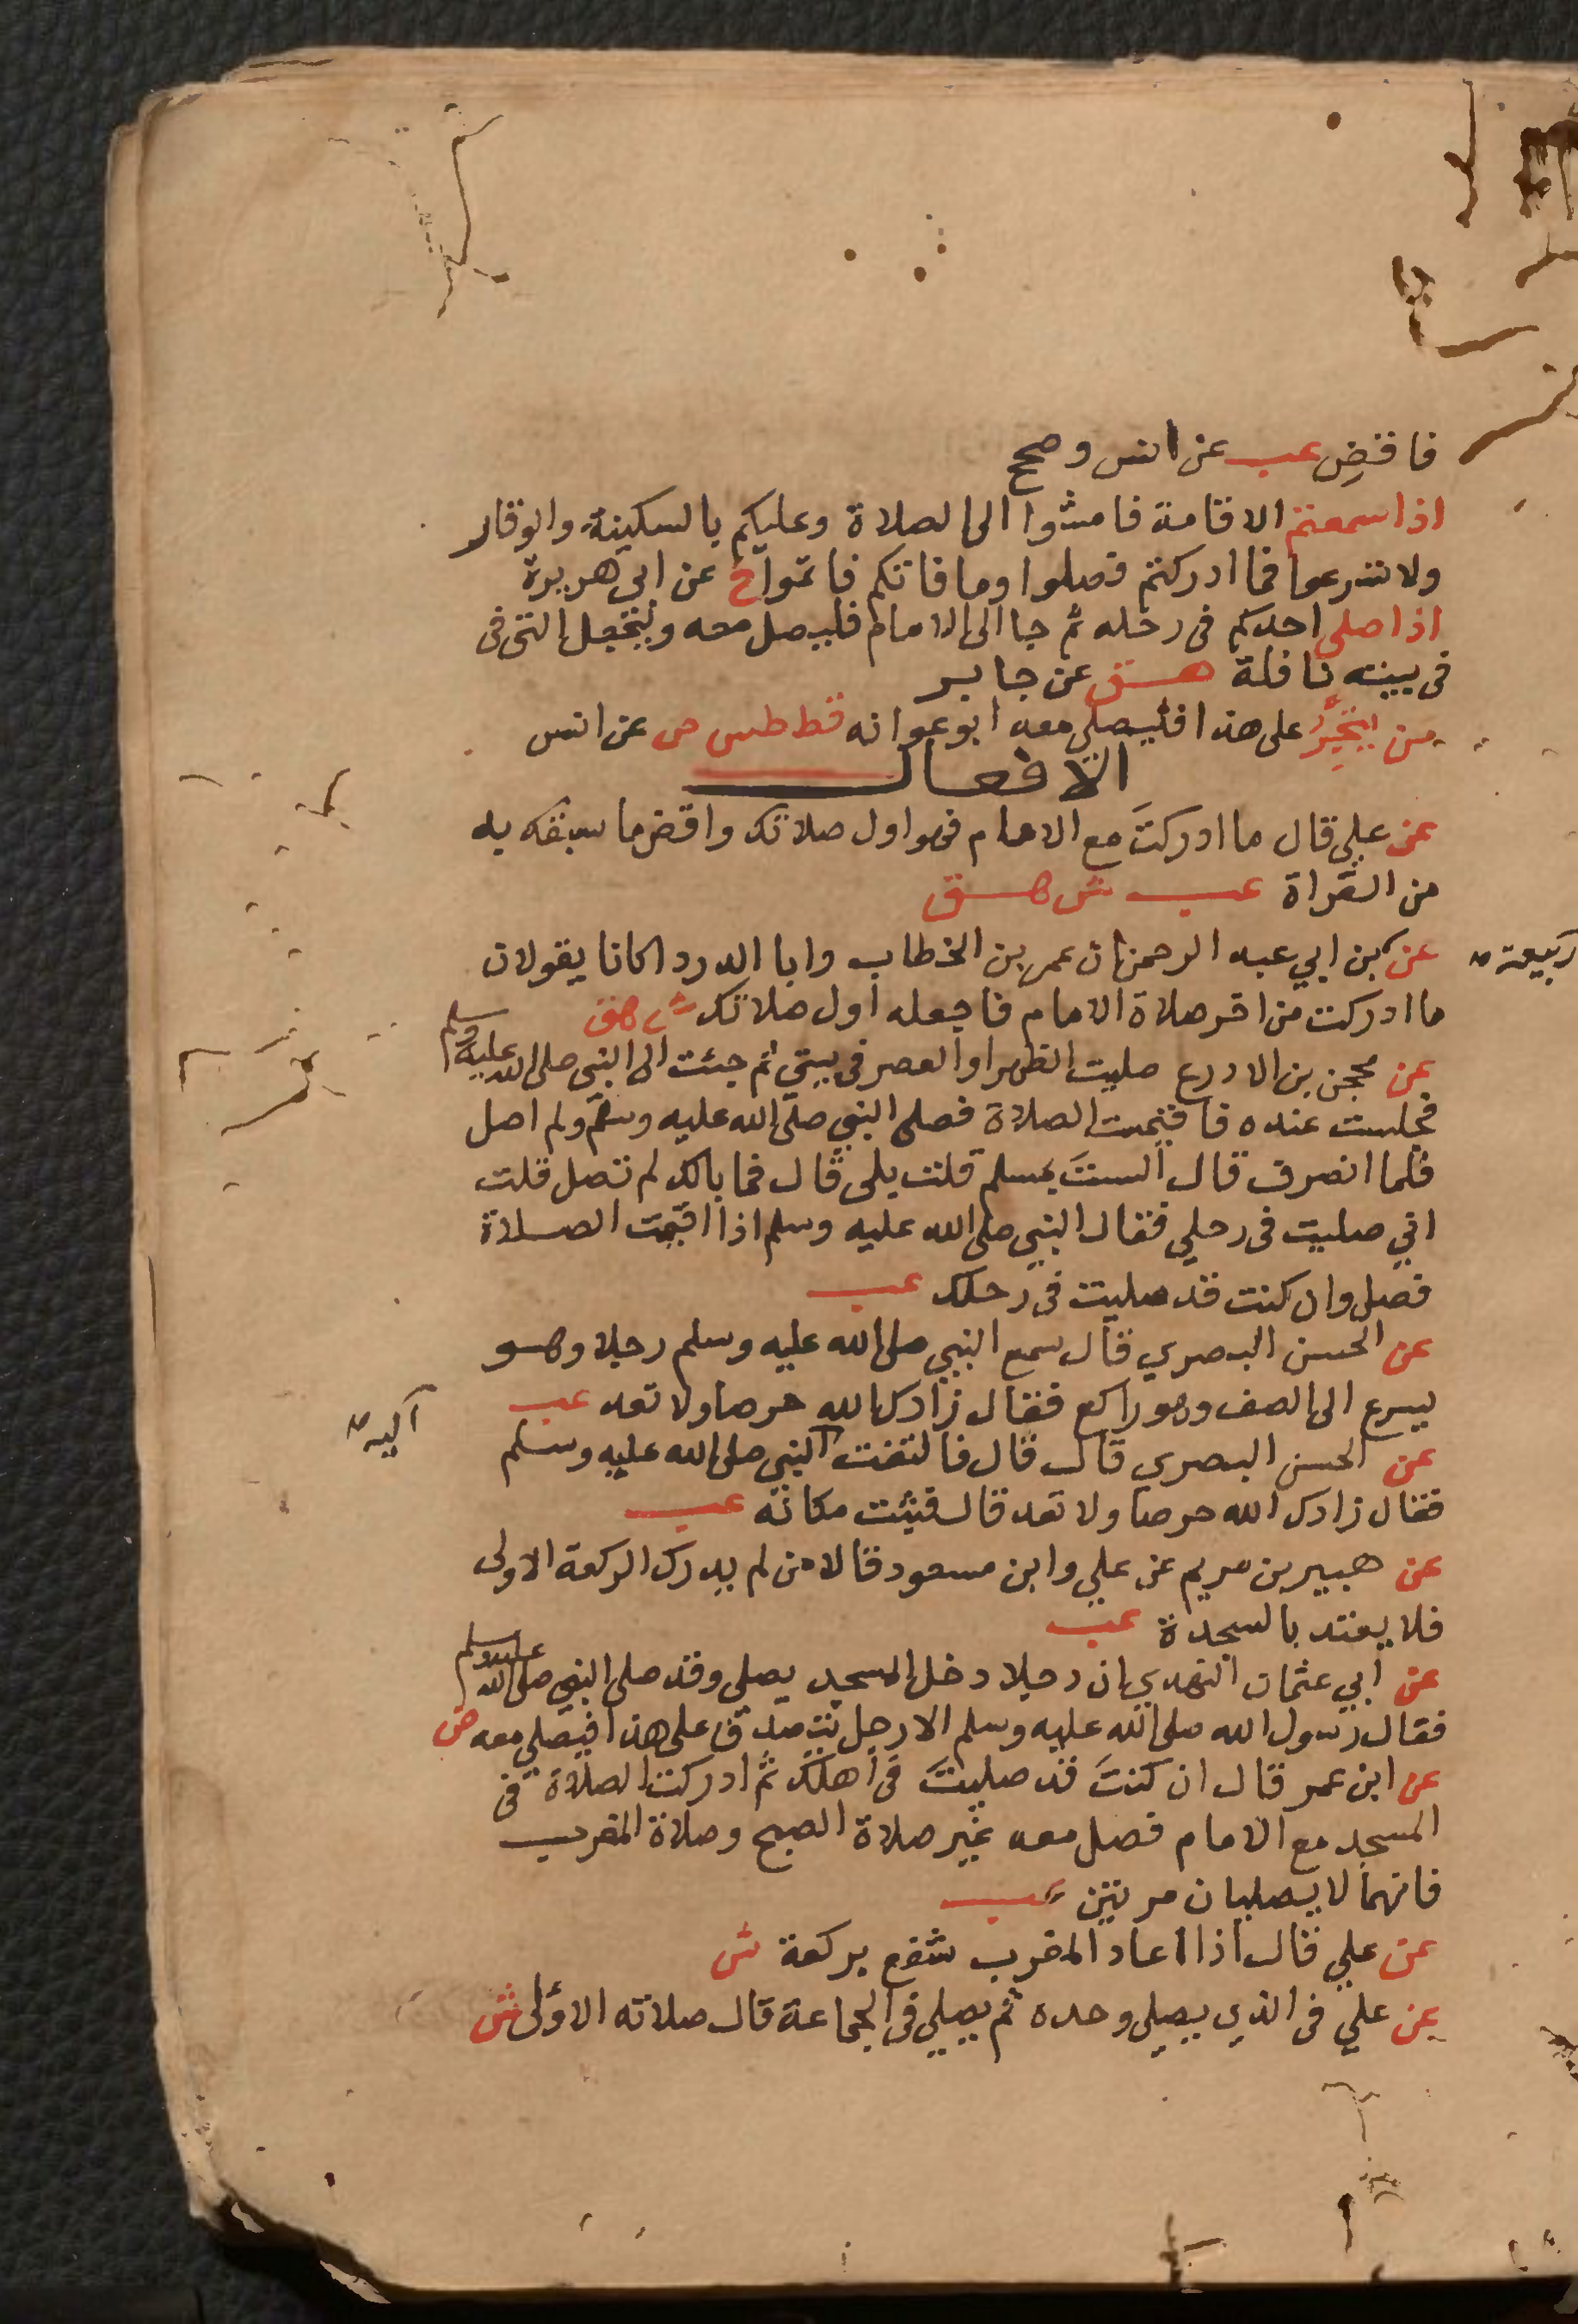 فاقض عب عن انس وصحح
اذا سمعتم الاقامة فامشوا الى الصلاة وعليكم بالسكينة والوقار
ولا تسرعوا فما ادركتم فصلوا وما فاتكم فاتموا خ عن ابي هريرة
اذا صلى احدكم في رحله ثم جا الى الامام فليصل معه وليجعل التي في
في بيته نافلة هق عن جابر
من يتجر على هذا فليصلي معه ابو عوانه قط طس ص عن انس
الافعال
عن علي قال ما ادركتَ مع الامام فهو اول صلاتك واقض ما سبقك به
من القراة عب ش هق
عن بن ابي عبد الرحمن ان عمر بن الخطاب وابا الدردا كانا يقولان
ربيعة
ما ادركت من اخر صلاة الامام فاجعله اول صلاتك ش هق
عن محجن بن الادرع صليت الظهر او العصر في بيتي ثم جئت الى النبي صلى الله عليه وسلم
فجلست عنده فاقيمت الصلاة فصلى النبي صلى الله عليه وسلم ولم اصل
فلما انصرف قال الستَ بمسلم قلت بلى قال فما بالك لم تصل قلت
اني صليت في رحلي فقال النبي صلى الله عليه وسلم اذا اقيمت الصلاة
فصل وان كنت قد صليت في رحلك عب
عن الحسن البصري قال سمع النبي صلى الله عليه وسلم رجلا وهو
يسرع الى الصف وهو راكع فقال زادك الله حرصا ولا تعد عب
عن الحسن البصري قال قال فالتفت النبي صلى الله عليه وسلم
اليه
فقال زادك الله حرصا ولا تعد قال فثبت مكانه عب
عن هبير بن مريم عن علي وابن مسعود قالا من لم يدرك الركعة الاولى
فلا يعتد بالسجدة عب
عن ابي عثمان النهدي ان رجلا دخل المسجد يصلي وقد صلى النبي صلى الله عليه وسلم
فقال رسول الله صلى الله عليه وسلم الا رجل يتصدق على هذا فيصلي معه ض
عن ابن عمر قال ان كنتَ قد صليتَ في اهلك ثم ادركت الصلاة في
المسجد مع الامام فصل معه غير صلاة الصبح وصلاة المغرب
فانهما لا يصليان مرتين عب
عن علي قال اذا اعاد المغرب شفع بركعة ش
عن علي في الذي يصلي وحده ثم يصلي في الجماعة قال صلاته الاولى ش